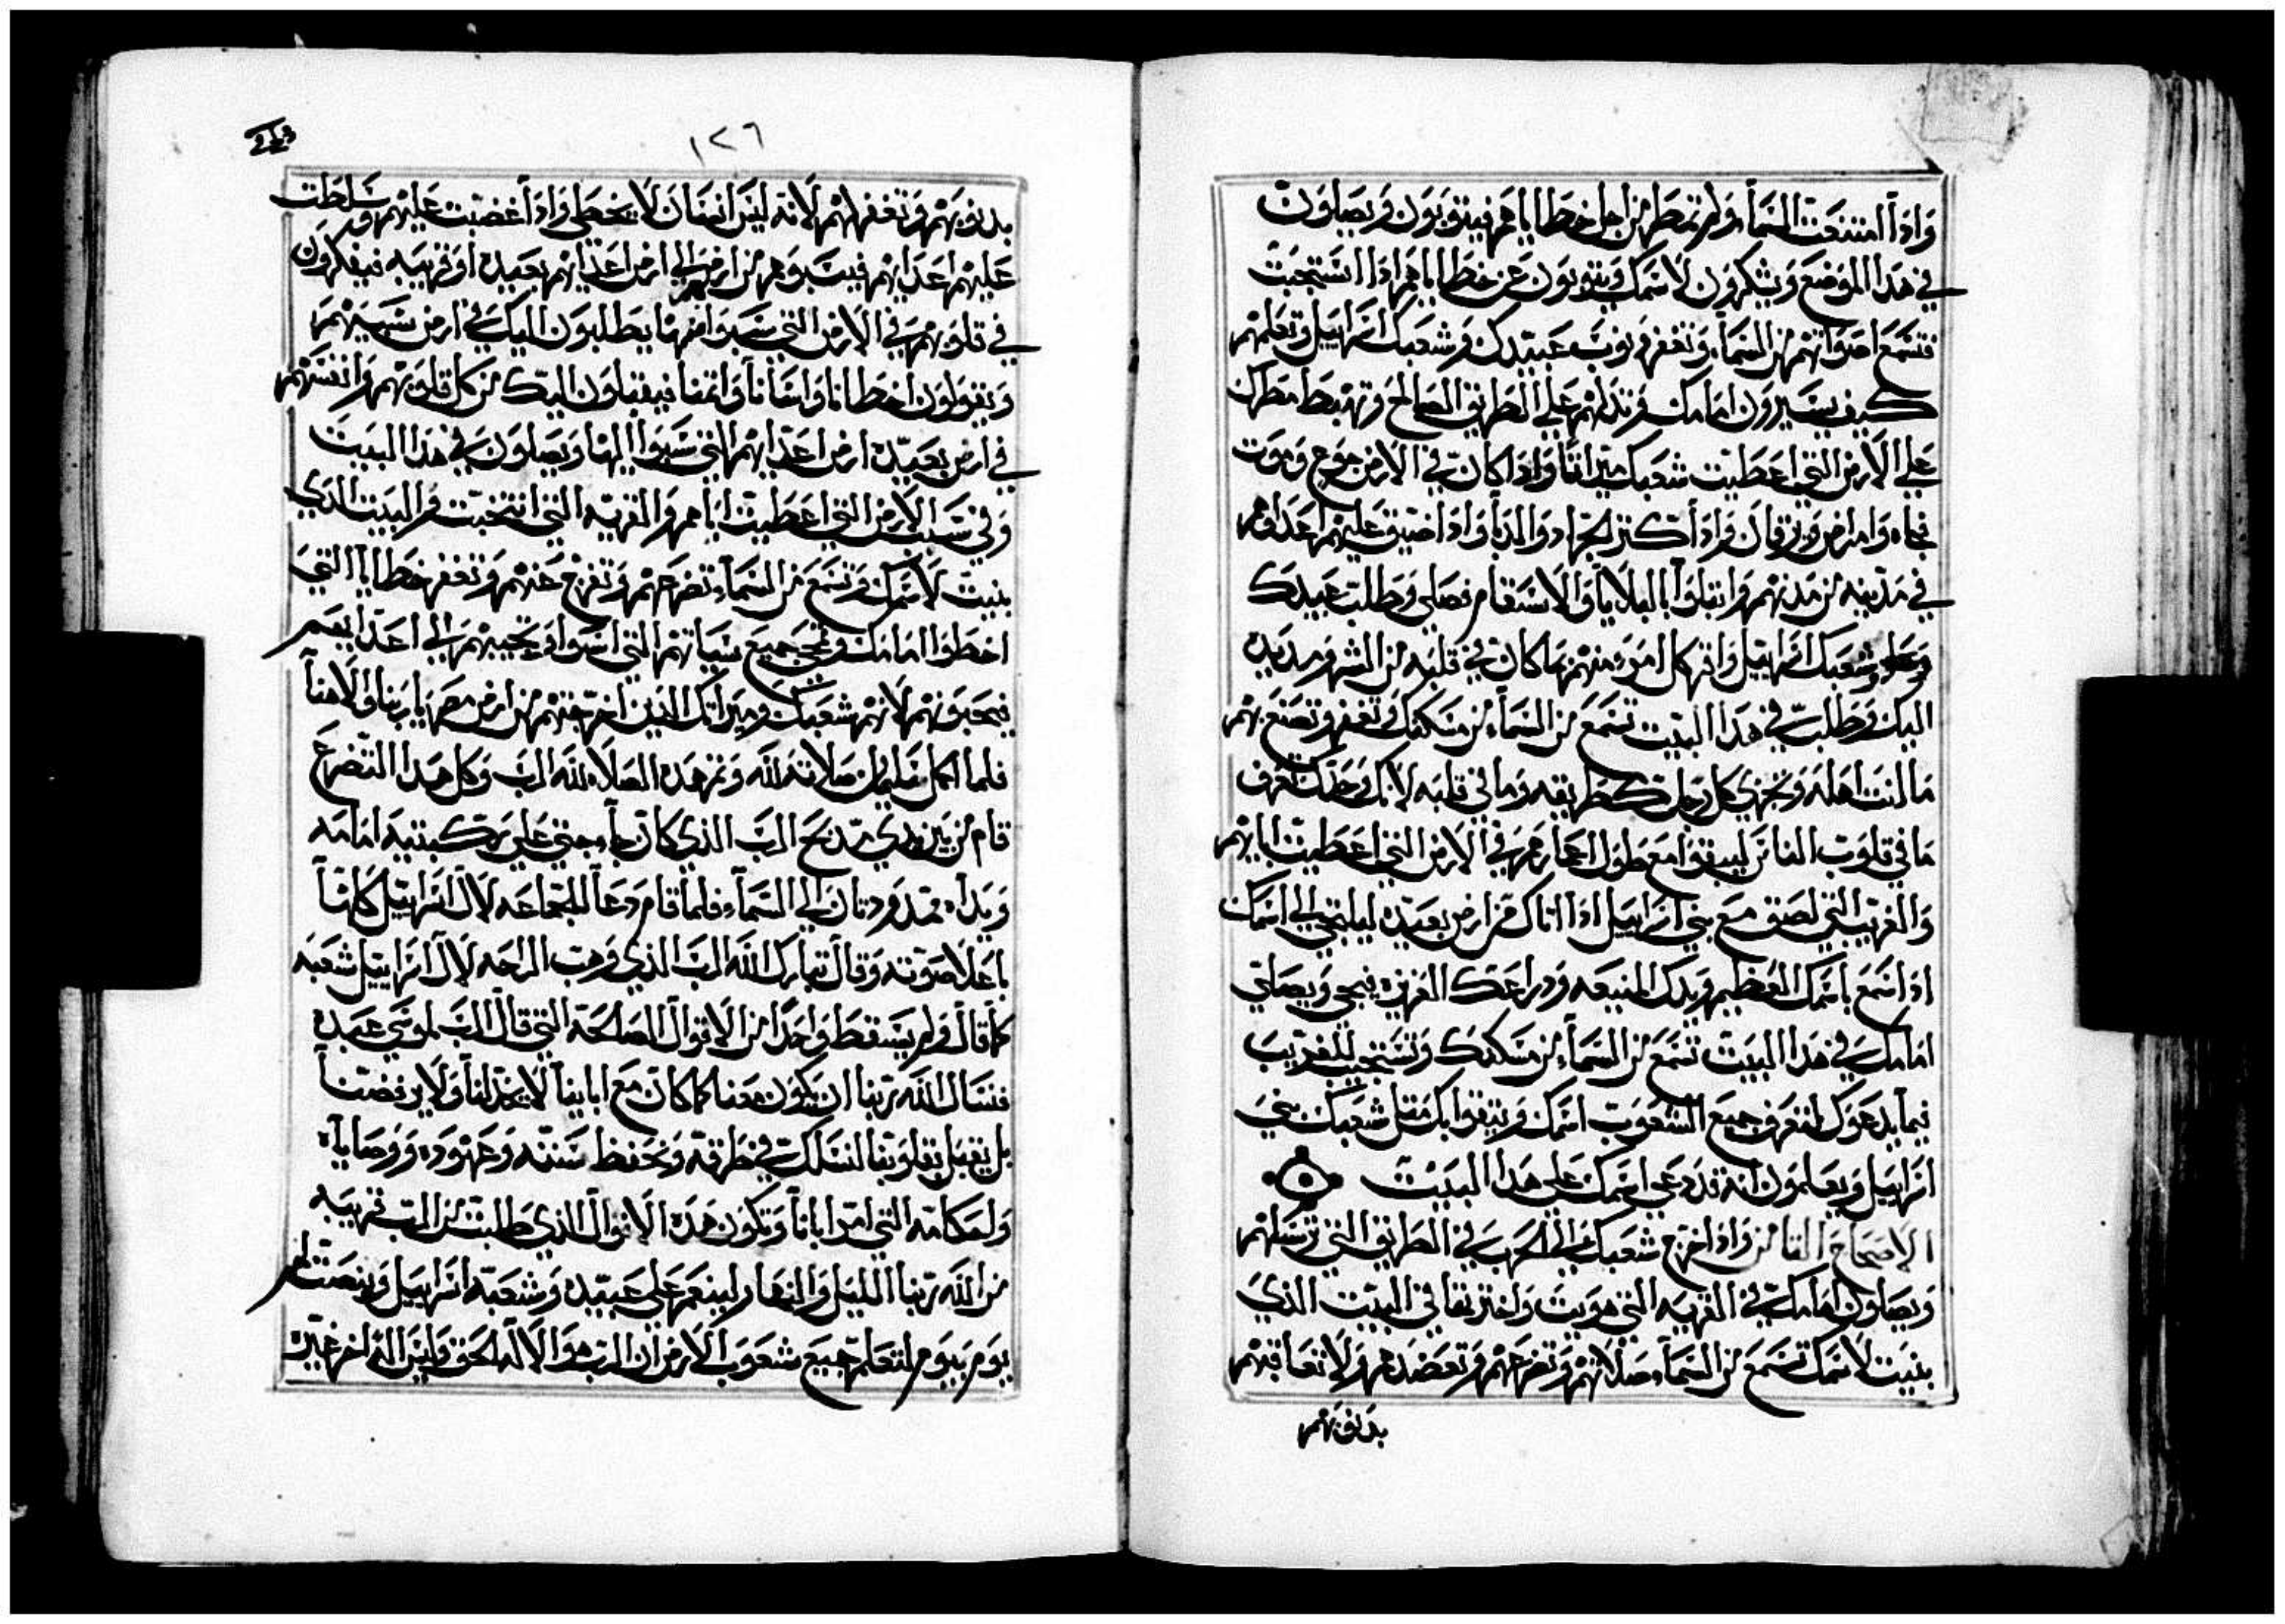 واذا امتنعت السماء ولم تمطر من اجل خطاياهم فيتوبون ويصلون
في هذا الموضع ويشكرون لاسمك ويتوبون عن خطاياهم اذا استجبت
فتسمع اصواتهم من السماء وتغفر ذنوب عبيدك وشعبك اسراييل وتعلمهم
كيف يسيرون امامك وتدلهم علي الطريق الصالح وتهبط مطرك
علي الارض التي اعطيت شعبك ميراثا واذا كان في الارض جوع وموت
فجاه وامراض ويرقان واذا كتر الجراد والدبا واذا ضيق عليهم اعداوهم
في مدينه من مدنهم وابتلوا بالبلايا والاسقام فصلي وطلب عبيدك
وشعبك اسراييل واقر كل امر منهم بما كان في قلبه من الشر ومد يديه
اليك وطلب في هذا البيت تسمع من السماء من مسكنك وتغفر وتصنع بهم
ما انت اهله وتجزي كل رجل كطريقه وما في قلبه لانك وحدك تعرف
ما في قلوب الناس ليبقوا مع طول اعمارهم في الارض التي اعطيت ابايهم
والغريب التي لصق مع بني اسراييل اذا اتاك من ارض بعيده ليلتجي الي اسمك
اذا سمع باسمك العظيم ويدك المنيعه ودراعك العزيزه فيجي ويصلي
امامك في هذا البيت تسمع من السماء من مسكنك وتستجيب للغريب
فيما يدعوك لتعرف جميع الشعوب اسمك ويتقوا بك مثل شعبك بني
اسراييل ويعلمون انه قد دعي اسمك علي هذا البيت
الاصحاح الثامن واذا خرج شعبك الي الحرب في الطريق التي ترسلهم
ويصلون امامك في القريه التي هويت واخترتها في البيت الذي
بنيت لاسمك تسمع من السماء صلاتهم وتضرعهم وتعضدهم ولا تعاقبهم
بذنوبهم
١٢٦
بذنوبهم وتغفر لهم لانه ليس انسان لا يخطي واذا غضبت عليهم وسلطت
عليهم اعدايهم فيسبوهم من ارضهم الي ارض اعدايهم بعيده او قريبه فيفكرون
في قلوبهم في الارض التي سبوا منها يطلبون اليك في ارض سبيهم
ويقولون اخطانا واسانا واثمنا فيقبلون اليك من كل قلوبهم وانفسهم
في ارض بعيده ارض اعدايهم التي سبوا اليها ويصلون في هذا البيت
وفي سبيل الارض التي اعطيت اباهم والقريه التي انتخبت والبيت الذي
بنيت لاسمك وتسمع من السماء تضرعهم وتفرج عنهم وتغفر خطايا التي
اخطوا امامك وتمحي جميع سياتهم التي اسوا وتحببهم الي اعدايهم
فيحبونهم لانهم شعبك وميراثك الذين اخرجتهم من ارض مصر يا ربنا والاهنا
فلما اكمل سليمان صلاته لله وتم هذه الصلاه لله الرب وكل هذا التضرع
قام من بين يدي مدبح الرب الذي كان جاء وجتي علي ركبتيه امامه
ويداه ممدودتان الي السماء فلما قام دعا للجماعه لال اسراييل كلها
باعلا صوته وقال تبارك الله الرب الذي وهب الراحه لال اسراييل شعبه
كما قال ولم يسقط واحدا من الاقوال الصالحة التي قال الرب لموسي عبده
فنسال الله ربنا ان يكون معنا كما كان مع ابايا لا يخدلنا ولا يرفضنا
بل يقبل بقلوبنا لنسلك في طرقه ونحفظ سننه وعهوده ووصاياه
واحكامه التي امر ابانا وتكون هذه الاقوال الذي طلبت من الرب قريبه
من الله ربنا الليل والنهار لينعم علي عبيده وشعبه اسراييل وينصت لهم
يوم بيوم لتعلم جميع شعوب الارض ان الرب هو الاله الحق وليس اله اخر غيره